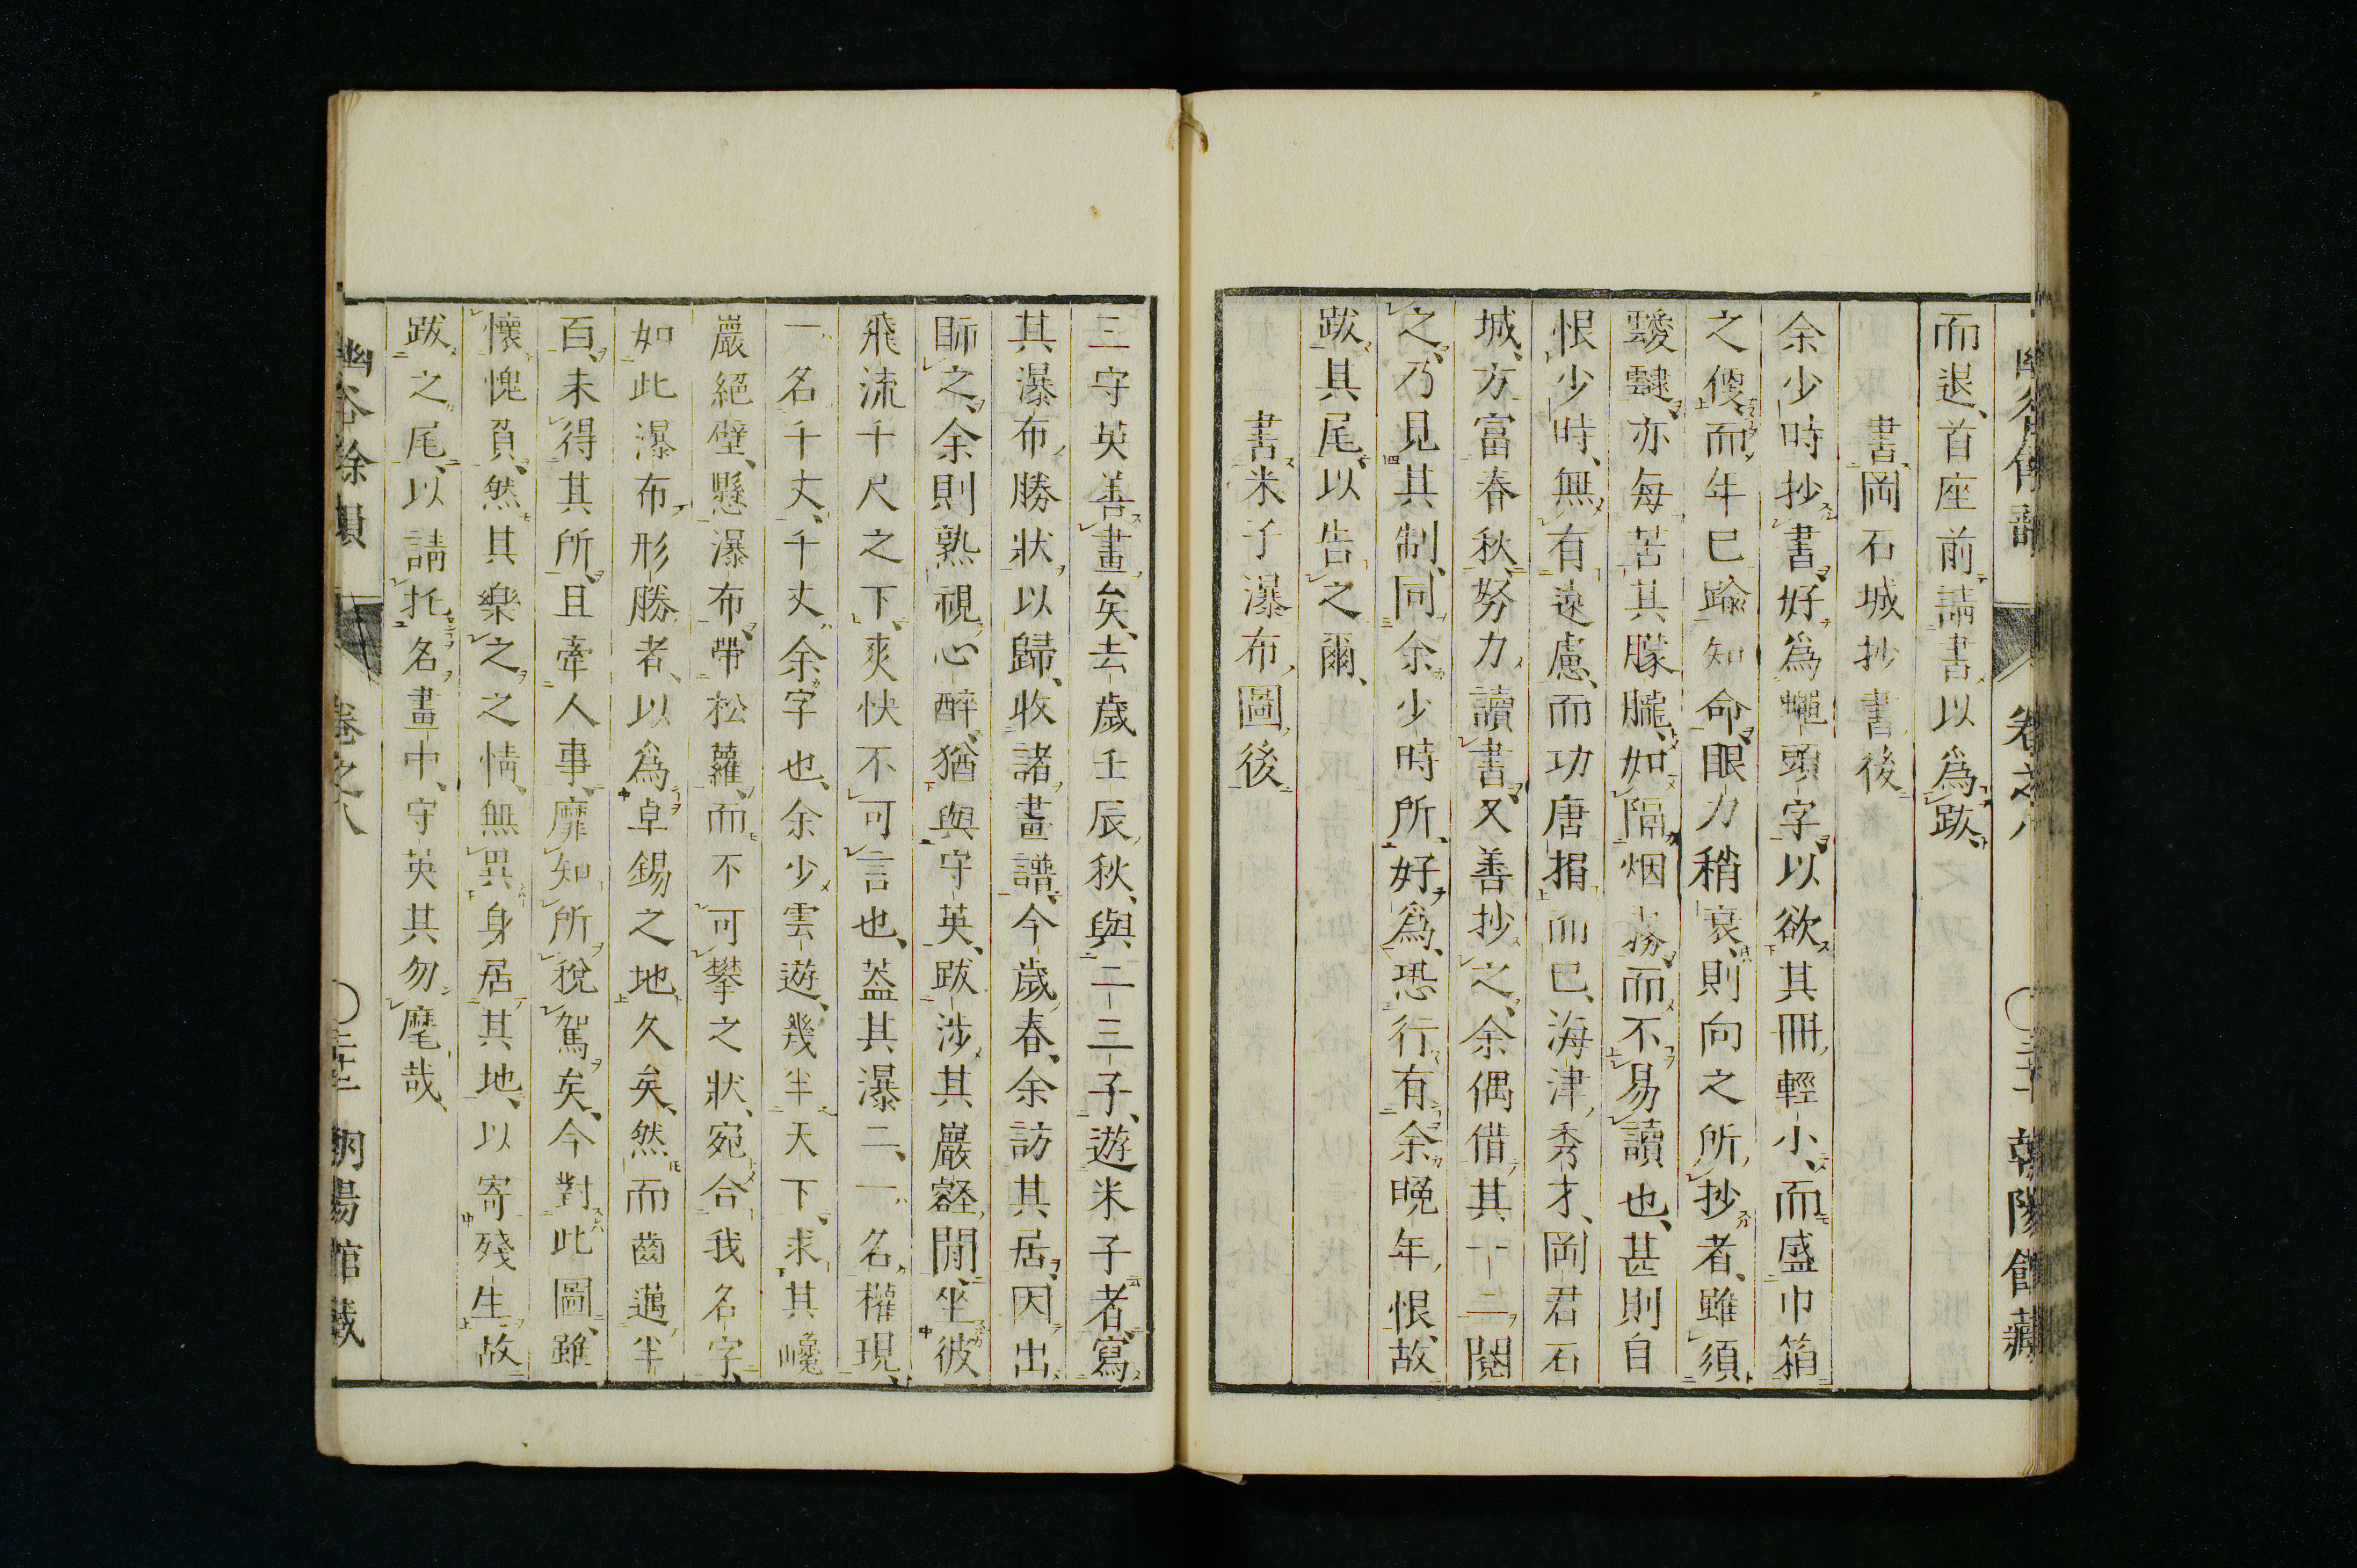 而退、首座前請書、以爲跋、
書岡石城抄書後
余少時抄書、好爲蠅頭字、以欲其冊輕小、而盛巾箱
之便、而年已踰知命、眼力稍衰、則向之所抄者、雖須
靉靆、亦每苦其朦朧、如隔烟霧、而不易讀也、甚則自
恨少時、無有遠慮、而功唐捐而已、海津秀才、岡君石
城、方富春秋、努力讀書、又善抄之、余偶借其一二閱
之、乃見其制、同余少時所好爲、恐行有余晚年恨、故
跋其尾、以告之爾、
書米子瀑布圖後
三守英善畫矣、去歲壬辰秋、與二三子、遊米子者、寫
其瀑布勝狀以歸、收諸畫譜、今歲春、余訪其居、因出
眎之、余則熟視心醉、猶與守英、跋涉其巖壑閒、坐彼
飛流千尺之下、爽快不可言也、蓋其瀑二、一名權現、
一名千丈、千丈余字也、余少雲遊、幾半天下、求其巉
巖絕壁、懸瀑布、帶松蘿、而不可攀之狀、宛合我名字、
如此瀑布形勝者、以爲卓錫之地久矣、然而齒邁半
百、未得其所、且牽人事、靡知所稅駕矣、今對此圖、雖
懷愧負、然其樂之之情、無異身居其地、以寄殘生、故
跋之尾、以請托名畫中、守英其勿麾哉、
幽谷餘韻 卷之八 朝陽館藏